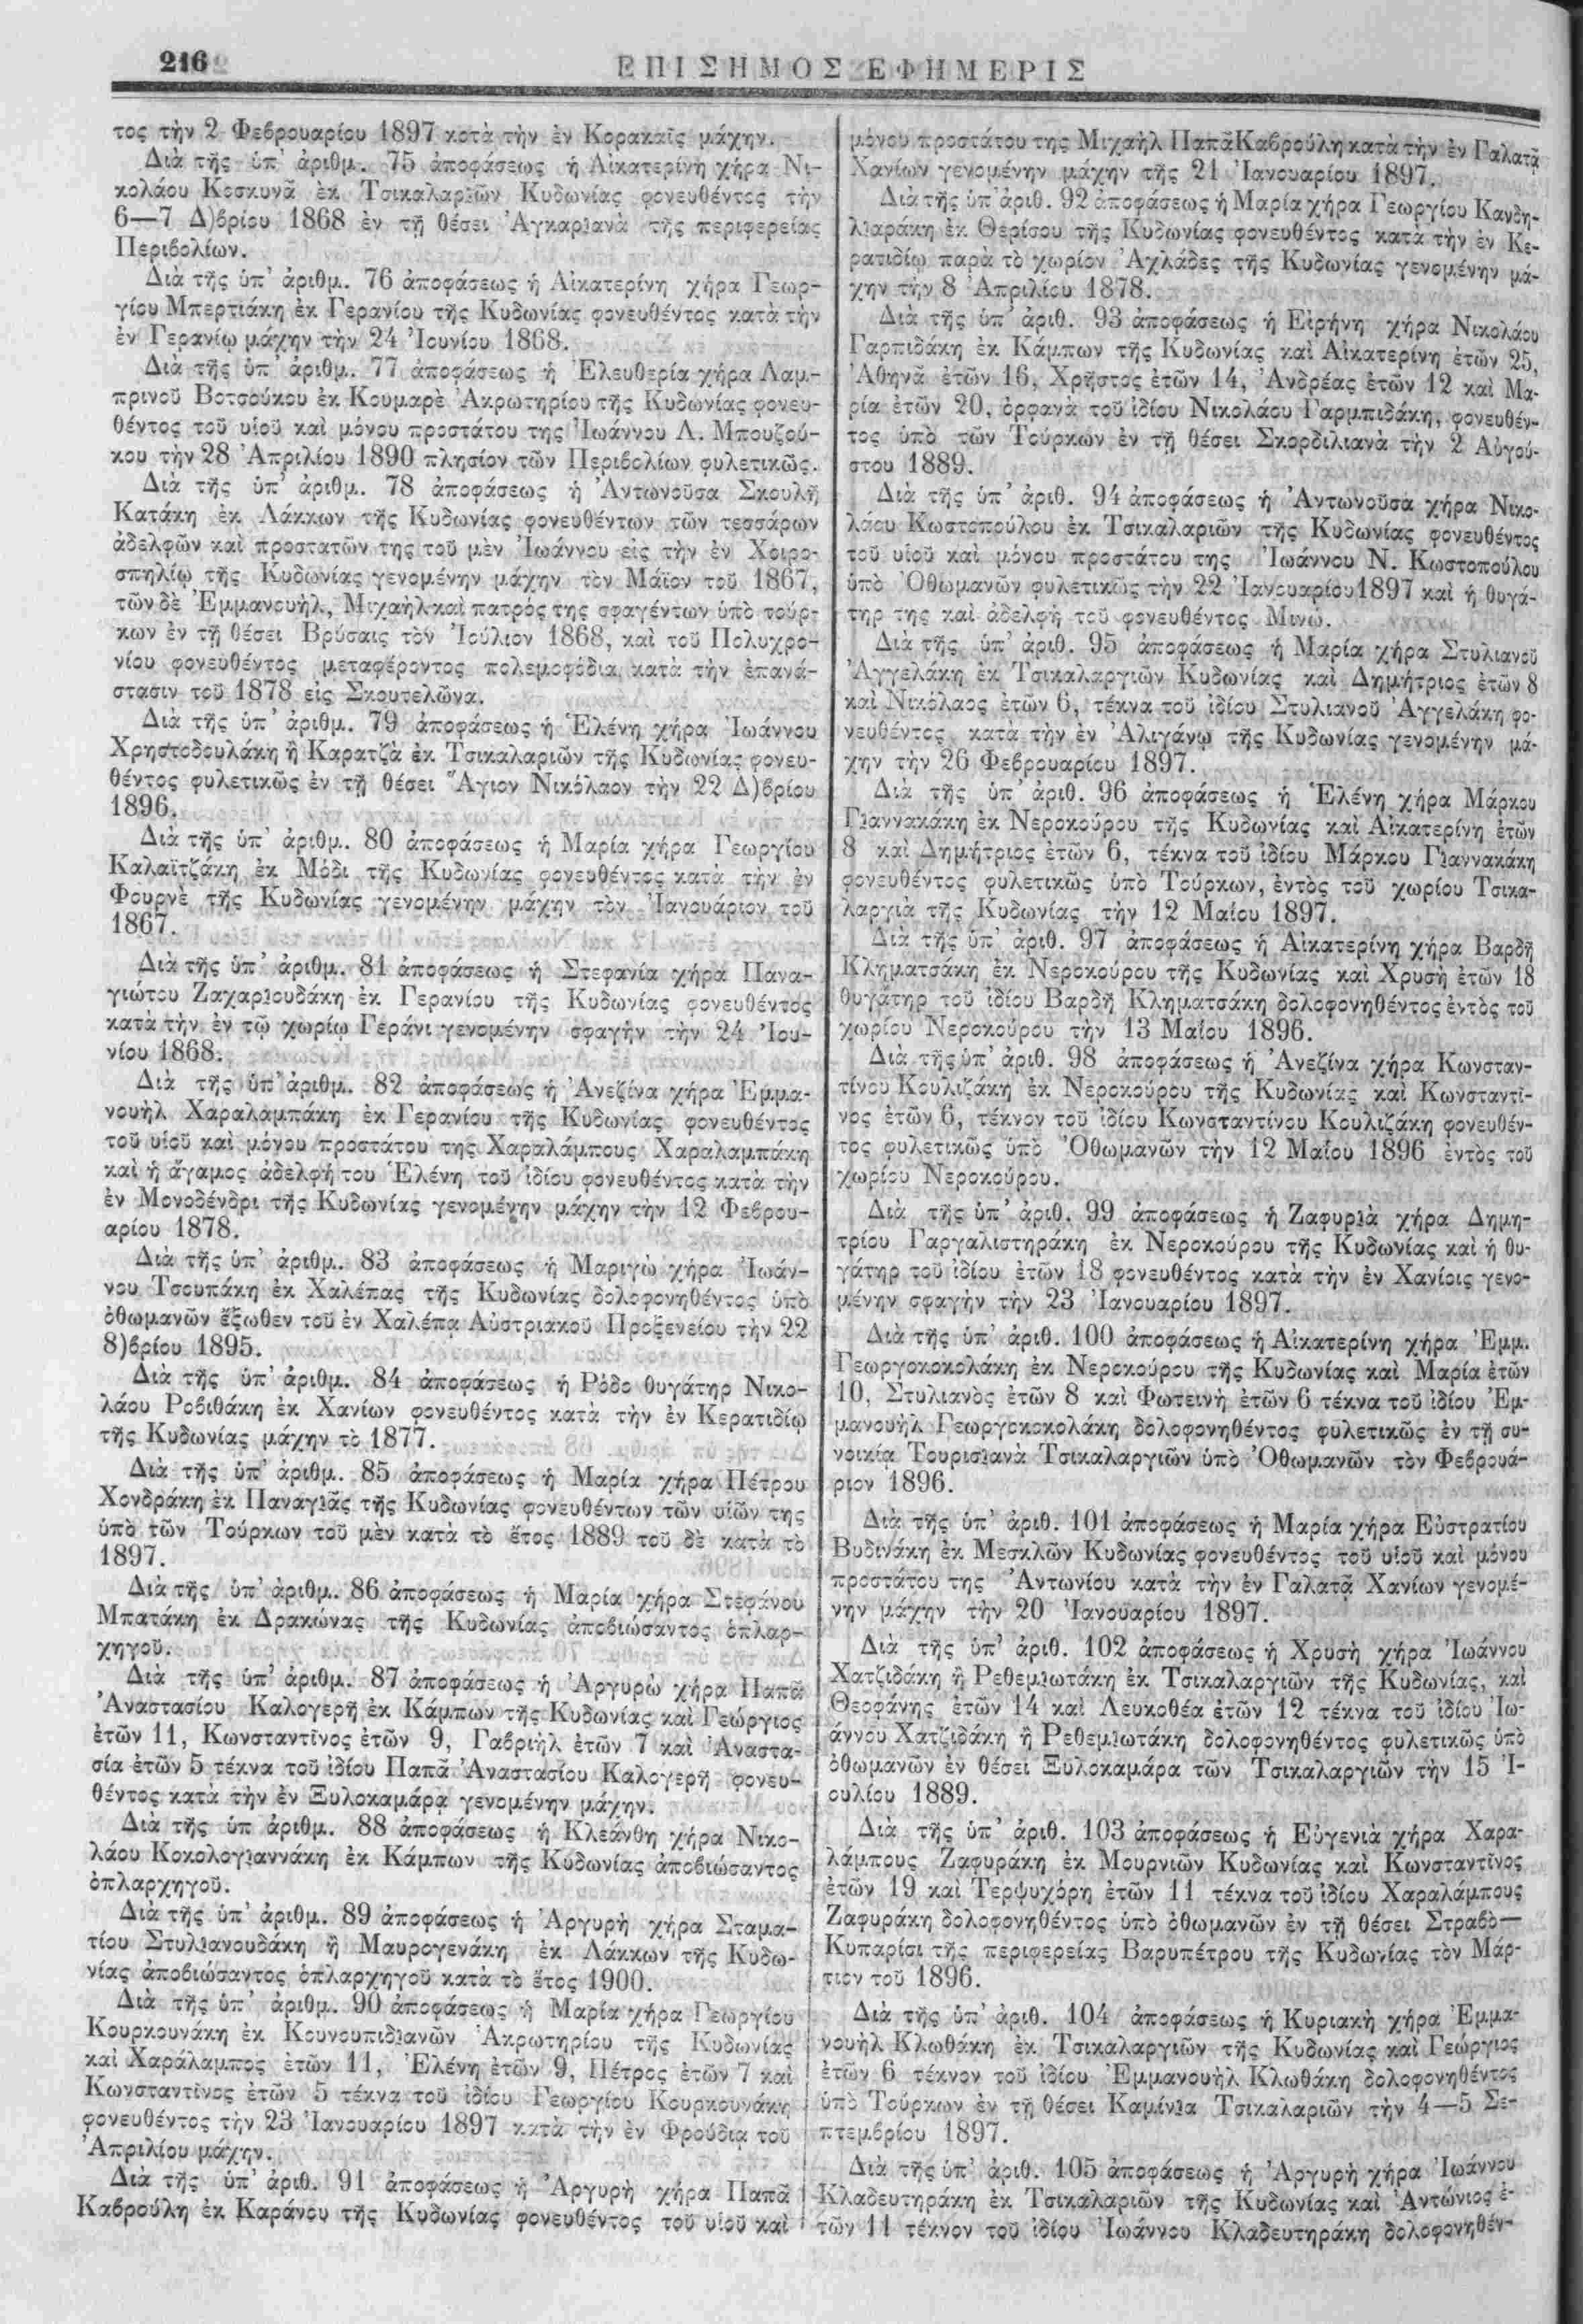 216
ΕΠΙΣΗΜΟΣ ΕΦΗΜΕΡΙΣ
τος τὴν 2 Φεβρουαρίου 1897 κατὰ τὴν ἐν Κορακαῖς μάχην.
Διὰ τῆς ὑπ' ἀριθμ. 75 ἀποφάσεως ἡ Αἰκατερίνη χήρα Νι-
κολάου Κοσκυνᾶ ἐκ Τσικαλαριῶν Κυδωνίας φονευθέντος τὴν
6—7 Δ)βρίου 1868 ἐν τῇ θέσει Ἀγκαριανὰ τῆς περιφερείας
Περιβολίων.
Διὰ τῆς ὑπ' ἀριθμ. 76 ἀποφάσεως ἡ Αἰκατερίνη χήρα Γεωρ-
γίου Μπερτιάκη ἐκ Γερανίου τῆς Κυδωνίας φονευθέντος κατὰ τὴν
ἐν Γερανίῳ μάχην τὴν 24 Ἰουνίου 1868.
Διὰ τῆς ὑπ' ἀριθμ. 77 ἀποφάσεως ἡ Ἐλευθερία χήρα Λαμ-
πρινοῦ Βοτσούκου ἐκ Κουμαρὲ Ἀκρωτηρίου τῆς Κυδωνίας φονευ-
θέντος τοῦ υἱοῦ καὶ μόνου προστάτου της Ἰωάννου Λ. Μπουζού-
κου τὴν 28 Ἀπριλίου 1890 πλησίον τῶν Περιβολίων φυλετικῶς.
Διὰ τῆς ὑπ' ἀριθμ. 78 ἀποφάσεως ἡ Ἀντωνοῦσα Σκουλῆ
Κατάκη ἐκ Λάκκων τῆς Κυδωνίας φονευθέντων τῶν τεσσάρων
ἀδελφῶν καὶ προστατῶν της τοῦ μὲν Ἰωάννου εἰς τὴν ἐν Χοιρο-
σπηλίῳ τῆς Κυδωνίας γενομένην μάχην τὸν Μάϊον τοῦ 1867,
τῶν δὲ Ἐμμανουὴλ, Μιχαὴλ καὶ πατρός της σφαγέντων ὑπὸ τούρ-
κων ἐν τῇ θέσει Βρύσαις τὸν Ἰούλιον 1868, καὶ τοῦ Πολυχρο-
νίου φονευθέντος μεταφέροντος πολεμοφόδια κατὰ τὴν ἐπανά-
στασιν τοῦ 1878 εἰς Σκουτελῶνα.
Διὰ τῆς ὑπ' ἀριθμ. 79 ἀποφάσεως ἡ Ἑλένη χήρα Ἰωάννου
Χρηστοδουλάκη ἢ Καρατζὰ ἐκ Τσικαλαριῶν τῆς Κυδωνίας φονευ-
θέντος φυλετικῶς ἐν τῇ θέσει Ἅγιον Νικόλαον τὴν 22 Δ)βρίου
1896.
Διὰ τῆς ὑπ' ἀριθμ. 80 ἀποφάσεως ἡ Μαρία χήρα Γεωργίου
Καλαϊτζάκη ἐκ Μόδι τῆς Κυδωνίας φονευθέντος κατὰ τὴν ἐν
Φουρνὲ τῆς Κυδωνίας γενομένην μάχην τὸν Ἰανουάριον τοῦ
1867.
Διὰ τῆς ὑπ' ἀριθμ. 81 ἀποφάσεως ἡ Στεφανία χήρα Πανα-
γιώτου Ζαχαριουδάκη ἐκ Γερανίου τῆς Κυδωνίας φονευθέντος
κατὰ τὴν ἐν τῷ χωρίῳ Γεράνι γενομένην σφαγὴν τὴν 24 Ἰου-
νίου 1868.
Διὰ τῆς ὑπ' ἀριθμ. 82 ἀποφάσεως ἡ Ἀνεζίνα χήρα Ἐμμα-
νουὴλ Χαραλαμπάκη ἐκ Γερανίου τῆς Κυδωνίας φονευθέντος
τοῦ υἱοῦ καὶ μόνου προστάτου της Χαραλάμπους Χαραλαμπάκη
καὶ ἡ ἄγαμος ἀδελφή του Ἑλένη τοῦ ἰδίου φονευθέντος κατὰ τὴν
ἐν Μονοδένδρι τῆς Κυδωνίας γενομένην μάχην τὴν 12 Φεβρου-
αρίου 1878.
Διὰ τῆς ὑπ' ἀριθμ. 83 ἀποφάσεως ἡ Μαριγὼ χήρα Ἰωάν-
νου Τσουπάκη ἐκ Χαλέπας τῆς Κυδωνίας δολοφονηθέντος ὑπὸ
ὀθωμανῶν ἔξωθεν τοῦ ἐν Χαλέπᾳ Αὐστριακοῦ Προξενείου τὴν 22
8)βρίου 1895.
Διὰ τῆς ὑπ' ἀριθμ. 84 ἀποφάσεως ἡ Ρόδο θυγάτηρ Νικο-
λάου Ροβιθάκη ἐκ Χανίων φονευθέντος κατὰ τὴν ἐν Κερατιδίῳ
τῆς Κυδωνίας μάχην τὸ 1877.
Διὰ τῆς ὑπ' ἀριθμ. 85 ἀποφάσεως ἡ Μαρία χήρα Πέτρου
Χονδράκη ἐκ Παναγιᾶς τῆς Κυδωνίας φονευθέντων τῶν υἱῶν της
ὑπὸ τῶν Τούρκων τοῦ μὲν κατὰ τὸ ἔτος 1889 τοῦ δὲ κατὰ τὸ
1897.
Διὰ τῆς ὑπ' ἀριθμ. 86 ἀποφάσεως ἡ Μαρία χήρα Στεφάνου
Μπατάκη ἐκ Δρακώνας τῆς Κυδωνίας ἀποβιώσαντος ὁπλαρ-
χηγοῦ.
Διὰ τῆς ὑπ' ἀριθμ. 87 ἀποφάσεως ἡ Ἀργυρὼ χήρα Παπᾶ
Ἀναστασίου Καλογερῆ ἐκ Κάμπων τῆς Κυδωνίας καὶ Γεώργιος
ἐτῶν 11, Κωνσταντῖνος ἐτῶν 9, Γαβριὴλ ἐτῶν 7 καὶ Ἀναστα-
σία ἐτῶν 5 τέκνα τοῦ ἰδίου Παπᾶ Ἀναστασίου Καλογερῆ φονευ-
θέντος κατὰ τὴν ἐν Ξυλοκαμάρᾳ γενομένην μάχην.
Διὰ τῆς ὑπ ἀριθμ. 88 ἀποφάσεως ἡ Κλεάνθη χήρα Νικο-
λάου Κοκολογιαννάκη ἐκ Κάμπων τῆς Κυδωνίας ἀποβιώσαντος
ὁπλαρχηγοῦ.
Διὰ τῆς ὑπ' ἀριθμ. 89 ἀποφάσεως ἡ Ἀργυρὴ χήρα Σταμα-
τίου Στυλιανουδάκη ἢ Μαυρογενάκη ἐκ Λάκκων τῆς Κυδω-
νίας ἀποβιώσαντος ὁπλαρχηγοῦ κατὰ τὸ ἔτος 1900.
Διὰ τῆς ὑπ' ἀριθμ. 90 ἀποφάσεως ἡ Μαρία χήρα Γεωργίου
Κουρκουνάκη ἐκ Κουνουπιδιανῶν Ἀκρωτηρίου τῆς Κυδωνίας
καὶ Χαράλαμπος ἐτῶν 11, Ἑλένη ἐτῶν 9, Πέτρος ἐτῶν 7 καὶ
Κωνσταντῖνος ἐτῶν 5 τέκνα τοῦ ἰδίου Γεωργίου Κουρκουνάκη
φονευθέντος τὴν 23 Ἰανουαρίου 1897 κατὰ τὴν ἐν Φρούδια τοῦ
Ἀπριλίου μάχην.
Διὰ τῆς ὑπ' ἀριθ. 91 ἀποφάσεως ἡ Ἀργυρὴ χήρα Παπᾶ
Καβρούλη ἐκ Καράνου τῆς Κυδωνίας φονευθέντος τοῦ υἱοῦ καὶ
μόνου προστάτου της Μιχαὴλ ΠαπᾶΚαβρούλη κατὰ τὴν ἐν Γαλατᾷ
Χανίων γενομένην μάχην τῆς 21 Ἰανουαρίου 1897.
Διὰ τῆς ὑπ' ἀριθ. 92 ἀποφάσεως ἡ Μαρία χήρα Γεωργίου Κανδη-
λιαράκη ἐκ Θερίσου τῆς Κυδωνίας φονευθέντος κατὰ τὴν ἐν Κε-
ρατιδίῳ παρὰ τὸ χωρίον Ἀχλάδες τῆς Κυδωνίας γενομένην μά-
χην τὴν 8 Ἀπριλίου 1878.
Διὰ τῆς ὑπ' ἀριθ. 93 ἀποφάσεως ἡ Εἰρήνη χήρα Νικολάου
Γαρπιδάκη ἐκ Κάμπων τῆς Κυδωνίας καὶ Αἰκατερίνη ἐτῶν 25,
Ἀθηνᾶ ἐτῶν 16, Χρῆστος ἐτῶν 14, Ἀνδρέας ἐτῶν 12 καὶ Μα-
ρία ἐτῶν 20, ὀρφανὰ τοῦ ἰδίου Νικολάου Γαρμπιδάκη, φονευθέν-
τος ὑπὸ τῶν Τούρκων ἐν τῇ θέσει Σκορδιλιανὰ τὴν 2 Αὐγού-
στου 1889.
Διὰ τῆς ὑπ' ἀριθ. 94 ἀποφάσεως ἡ Ἀντωνοῦσα χήρα Νικο-
λάου Κωστοπούλου ἐκ Τσικαλαριῶν τῆς Κυδωνίας φονευθέντος
τοῦ υἱοῦ καὶ μόνου προστάτου της Ἰωάννου Ν. Κωστοπούλου
ὑπὸ Ὀθωμανῶν φυλετικῶς τὴν 22 Ἰανουαρίου 1897 καὶ ἡ θυγά-
τηρ της καὶ ἀδελφὴ τοῦ φονευθέντος Μινω.
Διὰ τῆς ὑπ' ἀριθ. 95 ἀποφάσεως ἡ Μαρία χήρα Στυλιανοῦ
Ἀγγελάκη ἐκ Τσικαλαργιῶν Κυδωνίας καὶ Δημήτριος ἐτῶν 8
καὶ Νικόλαος ἐτῶν 6, τέκνα τοῦ ἰδίου Στυλιανοῦ Ἀγγελάκη φο-
νευθέντος κατὰ τὴν ἐν Ἀλιγάνῳ τῆς Κυδωνίας γενομένην μά-
χην τὴν 26 Φεβρουαρίου 1897.
Διὰ τῆς ὑπ' ἀριθ. 96 ἀποφάσεως ἡ Ἑλένη χήρα Μάρκου
Γιαννακάκη ἐκ Νεροκούρου τῆς Κυδωνίας καὶ Αἰκατερίνη ἐτῶν
8 καὶ Δημήτριος ἐτῶν 6, τέκνα τοῦ ἰδίου Μάρκου Γιαννακάκη
φονευθέντος φυλετικῶς ὑπὸ Τούρκων, ἐντὸς τοῦ χωρίου Τσικα-
λαργιὰ τῆς Κυδωνίας τὴν 12 Μαΐου 1897.
Διὰ τῆς ὑπ' ἀριθ. 97 ἀποφάσεως ἡ Αἰκατερίνη χήρα Βαρδῆ
Κληματσάκη ἐκ Νεροκούρου τῆς Κυδωνίας καὶ Χρυσὴ ἐτῶν 18
θυγάτηρ τοῦ ἰδίου Βαρδῆ Κληματσάκη δολοφονηθέντος ἐντὸς τοῦ
χωρίου Νεροκούρου τὴν 13 Μαΐου 1896.
Διὰ τῆς ὑπ' ἀριθ. 98 ἀποφάσεως ἡ Ἀνεζίνα χήρα Κωνσταν-
τίνου Κουλιζάκη ἐκ Νεροκούρου τῆς Κυδωνίας καὶ Κωνσταντῖ-
νος ἐτῶν 6, τέκνον τοῦ ἰδίου Κωνσταντίνου Κουλιζάκη φονευθέν-
τος φυλετικῶς ὑπὸ Ὀθωμανῶν τὴν 12 Μαΐου 1896 ἐντὸς τοῦ
χωρίου Νεροκούρου.
Διὰ τῆς ὑπ' ἀριθ. 99 ἀποφάσεως ἡ Ζαφυριὰ χήρα Δημη-
τρίου Γαργαλιστηράκη ἐκ Νεροκούρου τῆς Κυδωνίας καὶ ἡ θυ-
γάτηρ τοῦ ἰδίου ἐτῶν 18 φονευθέντος κατὰ τὴν ἐν Χανίοις γενο-
μένην σφαγὴν τὴν 23 Ἰανουαρίου 1897.
Διὰ τῆς ὑπ' ἀριθ. 100 ἀποφάσεως ἡ Αἰκατερίνη χήρα Ἐμμ.
Γεωργοκοκολάκη ἐκ Νεροκούρου τῆς Κυδωνίας καὶ Μαρία ἐτῶν
10, Στυλιανὸς ἐτῶν 8 καὶ Φωτεινὴ ἐτῶν 6 τέκνα τοῦ ἰδίου Ἐμ-
μανουὴλ Γεωργοκοκολάκη δολοφονηθέντος φυλετικῶς ἐν τῇ συ-
νοικίᾳ Τουρισιανὰ Τσικαλαργιῶν ὑπὸ Ὀθωμανῶν τὸν Φεβρουά-
ριον 1896.
Διὰ τῆς ὑπ' ἀριθ. 101 ἀποφάσεως ἡ Μαρία χήρα Εὐστρατίου
Βυδινάκη ἐκ Μεσκλῶν Κυδωνίας φονευθέντος τοῦ υἱοῦ καὶ μόνου
προστάτου της Ἀντωνίου κατὰ τὴν ἐν Γαλατᾷ Χανίων γενομέ-
νην μάχην τὴν 20 Ἰανουαρίου 1897.
Διὰ τῆς ὑπ' ἀριθ. 102 ἀποφάσεως ἡ Χρυσὴ χήρα Ἰωάννου
Χατζιδάκη ἢ Ρεθεμιωτάκη ἐκ Τσικαλαργιῶν τῆς Κυδωνίας, καὶ
Θεοφάνης ἐτῶν 14 καὶ Λευκοθέα ἐτῶν 12 τέκνα τοῦ ἰδίου Ἰω-
άννου Χατζιδάκη ἢ Ρεθεμιωτάκη δολοφονηθέντος φυλετικῶς ὑπὸ
ὀθωμανῶν ἐν θέσει Ξυλοκαμάρα τῶν Τσικαλαργιῶν τὴν 15 Ἰ-
ουλίου 1889.
Διὰ τῆς ὑπ' ἀριθ. 103 ἀποφάσεως ἡ Εὐγενιὰ χήρα Χαρα-
λάμπους Ζαφυράκη ἐκ Μουρνιῶν Κυδωνίας καὶ Κωνσταντῖνος
ἐτῶν 19 καὶ Τερψυχόρη ἐτῶν 11 τέκνα τοῦ ἰδίου Χαραλάμπους
Ζαφυράκη δολοφονηθέντος ὑπὸ ὀθωμανῶν ἐν τῇ θέσει Στραβὸ—
Κυπαρίσι τῆς περιφερείας Βαρυπέτρου τῆς Κυδωνίας τὸν Μάρ-
τιον τοῦ 1896.
Διὰ τῆς ὑπ' ἀριθ. 104 ἀποφάσεως ἡ Κυριακὴ χήρα Ἐμμα-
νουὴλ Κλωθάκη ἐκ Τσικαλαργιῶν τῆς Κυδωνίας καὶ Γεώργιος
ἐτῶν 6 τέκνον τοῦ ἰδίου Ἐμμανουὴλ Κλωθάκη δολοφονηθέντος
ὑπὸ Τούρκων ἐν τῇ θέσει Καμίνια Τσικαλαριῶν τὴν 4—5 Σε-
πτεμβρίου 1897.
Διὰ τῆς ὑπ' ἀριθ. 105 ἀποφάσεως ἡ Ἀργυρὴ χήρα Ἰωάννου
Κλαδευτηράκη ἐκ Τσικαλαριῶν τῆς Κυδωνίας καὶ Ἀντώνιος ἐ-
τῶν 11 τέκνον τοῦ ἰδίου Ἰωάννου Κλαδευτηράκη δολοφονηθέν-